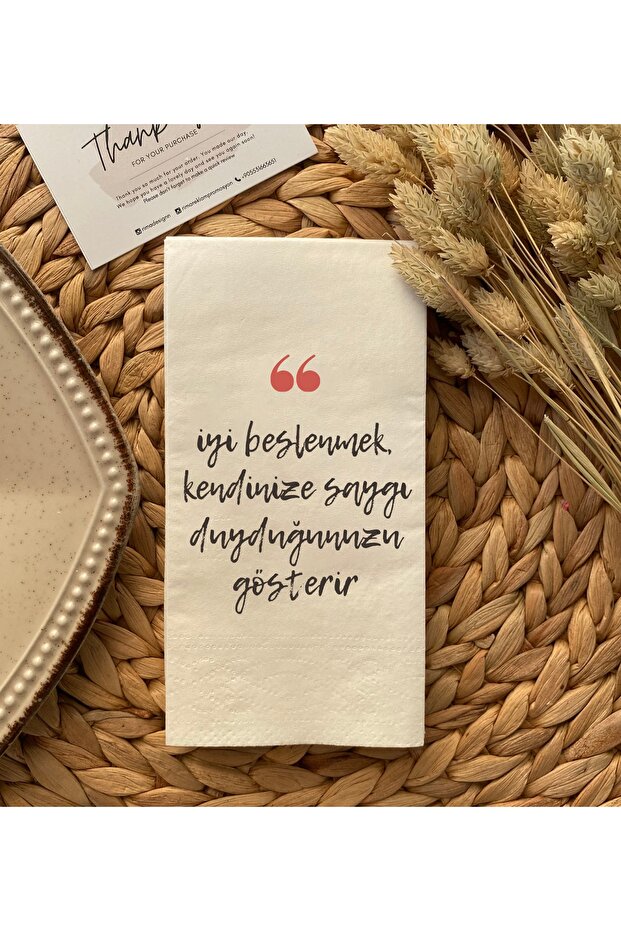 Thank
FOR YOUR PURCHASE
Thank you so much for your order. You made our day.
We hope you have a lovely day and see you again soon!
Please don't forget to make a quick review
rimadesignn rimareklampromosyon +905531665651
“
iyi beslenmek,
kendinize saygı
duyduğunuzu
gösterir